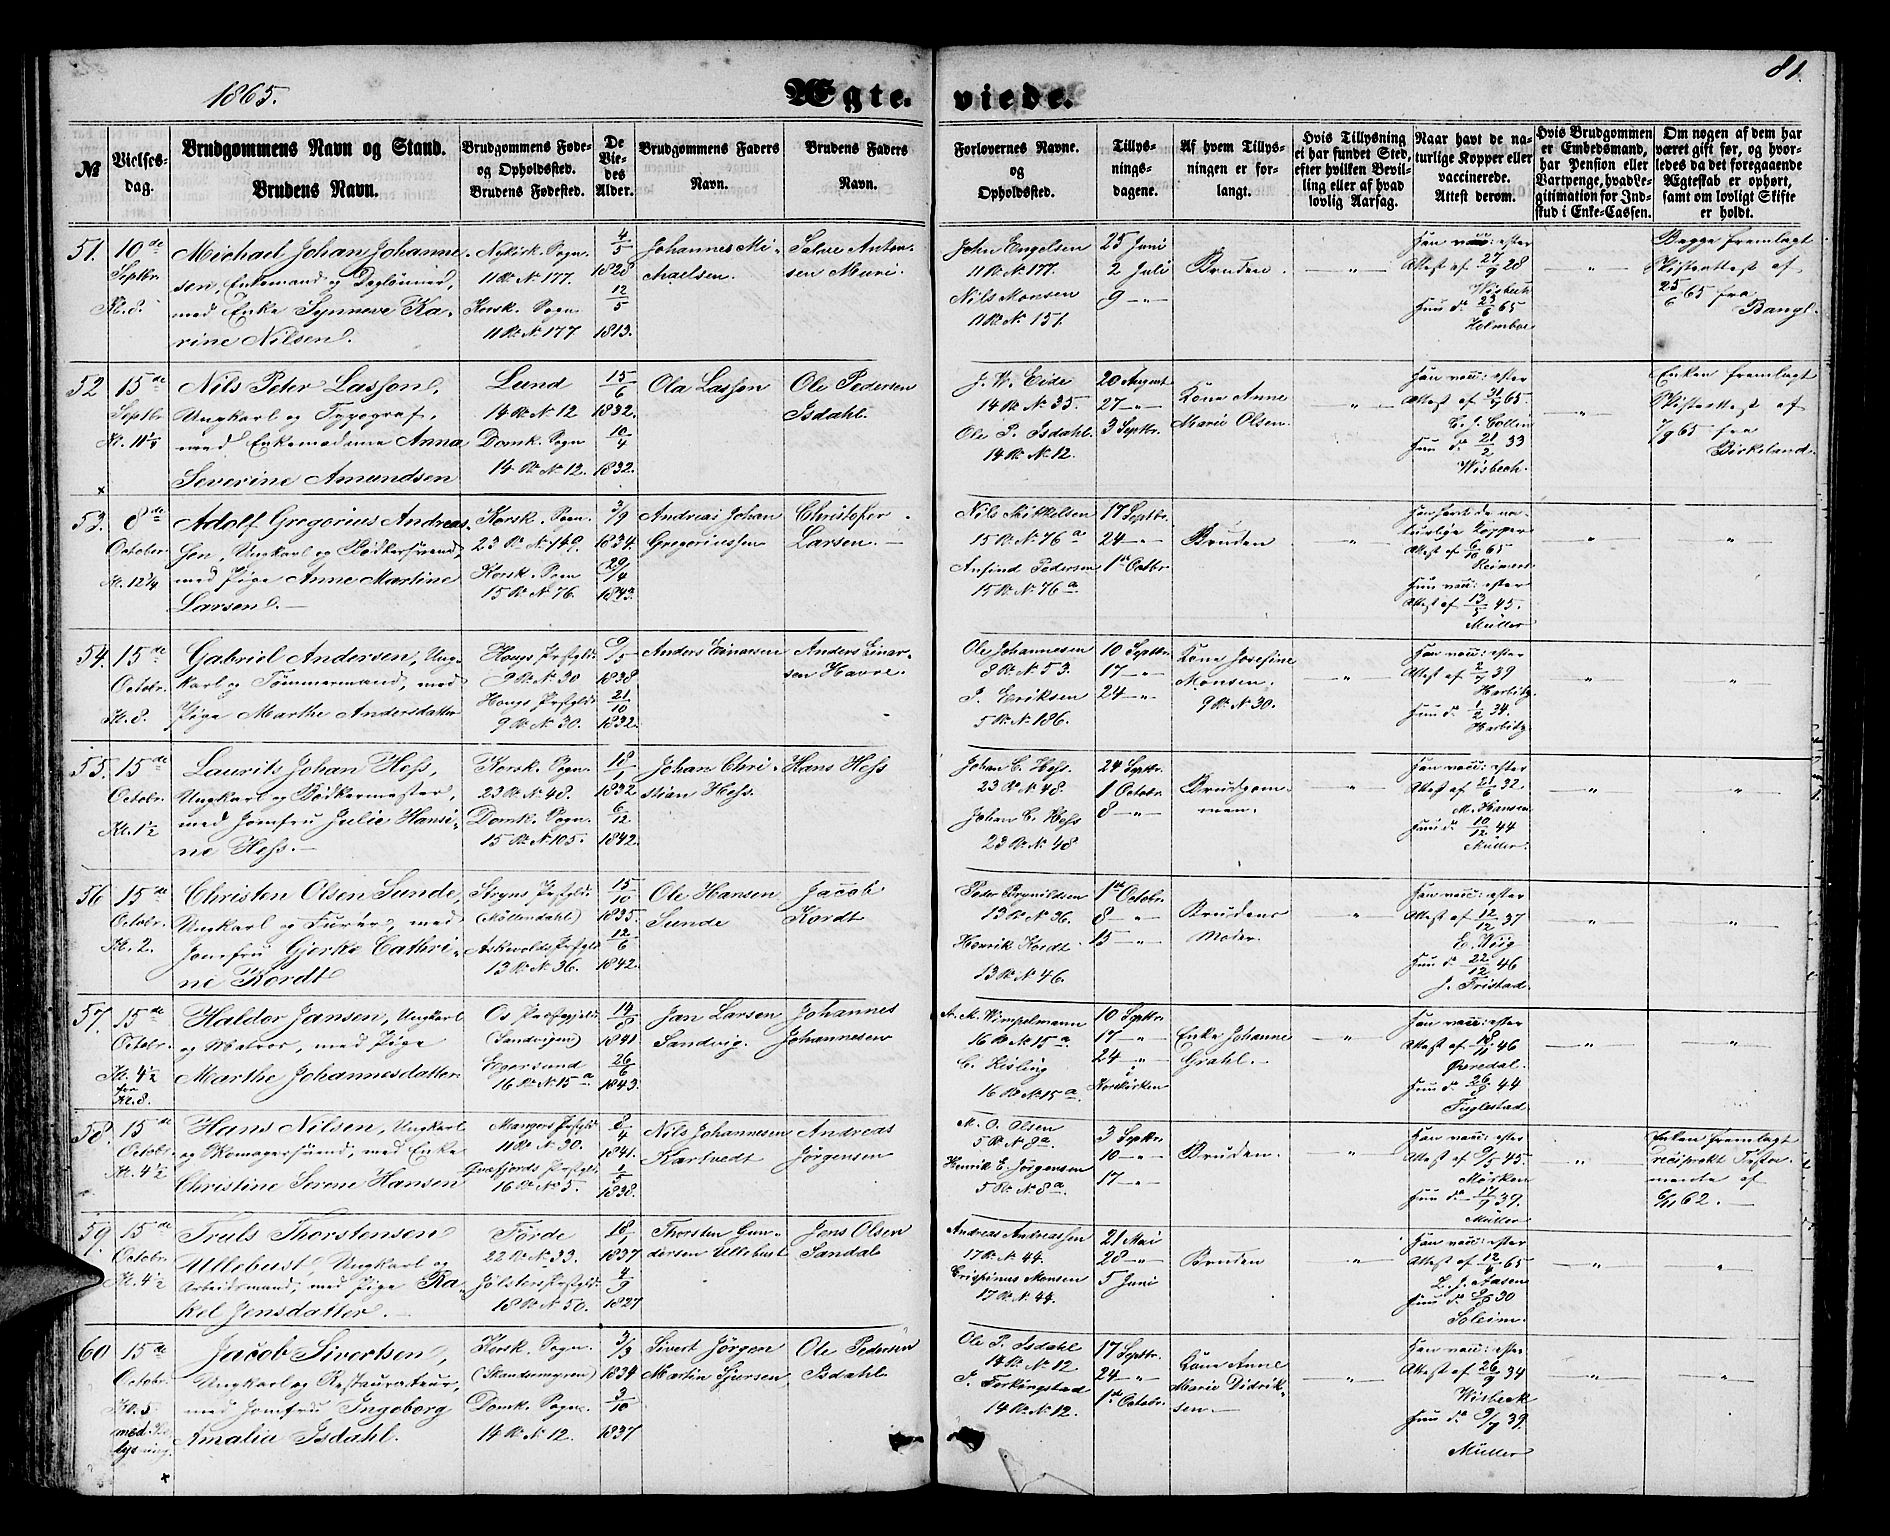 81.
1865.
Ægte-
viede.
№
Vielses-
dag.
Brudgommens Navn og Stand.
Brudens Navn.
Brudgommens Føde-
og Opholdssted.
Brudens Fødested.
De
Vie-
des
Alder.
Brudgommens Faders
Navn.
Brudens Faders
Navn.
Forlovernes Navne.
og
Opholdssted.
Tillys-
nings-
dagene.
Af hvem Tillys-
ningen er for-
langt.
Hvis Tillysning
ei har fundet Sted,
efter hvilken Bevil-
ling eller af hvad
lovlig Aarsag.
Naar havt de na-
turlige Kopper eller
vaccinerede.
Attest derom.
Hvis Brudgommen
er Embedsmand,
har Pension eller
Vartpenge, hvad Le-
gitimation for Ind-
skud i Enke-Cassen.
Om nogen af dem har
været gift før, og hvor-
ledes da det foregaaende
Ægteskab er ophørt,
samt om lovligt Skifte
er holdt.
51.
10de
Septbr.
Kl. 8.
Michael Johan Johanne-
sen, Enkemand og Daglønner,
med Enke Synneve Ka-
rine Nilsen.
Nykirk. Sogn.
11 R. N. 177.
Korsk. Sogn
11 R. N. 177
4/5
1828
12/5
1813.
Johannes Mi-
chaelsen.
Salve Anton-
sen Muri.
John Engelsen
11 R. N. 177.
Nils Monsen
11 R. N. 151.
25 Juni
2 Juli
9 — "
Bruden.
— " —
Han vacc: efter
Attest af 27/9 28
Wisbech
Hun do 23/6 65
Holmboe
— " —
Begge fremlagt
Skifteattest af
25/6 65 fra
Bangl.
52
15de
Septbr.
Nils Peter Lasson,
Ungkarl og Typograf,
med Enkemadame Anna
Severine Amundsen
Lund
14 R. N. 12
Domk. Sogn
14 R. N. 12.
15/6
1832.
10/4
1832.
Ola Lasson
Ole Pedersen
Isdahl.
J. W. Eide
14 R. N. 35.
Ole P. Isdahl.
14 R. N. 12.
20 August
27 — "
3 Septbr.
Kone Anne
Marie Olsen.
" —
Han vacc: efter
C. J. Collin
Hun do 21/2 33
Wisbech.
— " —
Enken fremlagt
Skifteattest af
7/9 65 fra
Birkeland.
53.
8de
October
Kl. 12 1/4
Adolf Gregorius Andreas-
sen, Ungkarl og Bødkersvend,
med Pige Anne Martine
Larsen. —
Korsk. Sogn.
23 R. N. 149.
Korsk. Sogn
15 R. N. 76.
3/9
1834.
29/4
1843.
Andreas Johan
Gregoriussen
Christofer
Larsen. —
Nils Mikkelsen
15 R. N. 76 a
Anfind Pedersen
15 R. N. 76 a
17 Septbr.
24 — "
1ste Octbr
Bruden
"
Han havt de na-
turlige Kopper
Attest af 6/10 65
Reimers
Hun vacc: efter
Attest af 13/5 45.
Müller
"
"
54.
15de
Octobr.
Kl. 8.
Gabriel Andersen, Ung-
karl og Tømmermand, med
Pige Marthe Andersdatter
Hougs Præstgjld
9 R. N. 30
Hougs Præstgjld
9 R. N. 30.
9/5
1838
21/10
1832.
Anders Einarsen
Anders Einar-
sen Havre.
Ole Johannesen
8 R. N. 53.
P. Eriksen
5 R. N. 186.
10 Septbr.
17 — "
24 — "
Kone Josefine
Monsen.
9 R. N. 30.
— " —
Han vacc: efter
Attest af 2/7 39
Harbitz
Hun do 1/2 34.
Harbitz
— " —
— " —
55.
15de
Octobr.
Kl. 1 1/2
Laurits Johan Hess,
Ungkarl og Bødkermester,
med Jomfru Julie Hansi-
ne Hess. —
Korsk. Sogn.
23 R. N. 48.
Domk. Sogn.
15 R. N. 105.
18/1
1832
6/12
1842.
Johan Chri-
stian Hess.
Hans Hess
Johan C. Hess.
23 R. N. 48
Johan C. Hess
23 R. N. 48
24 Septbr.
1 Octobr.
8 — "
Brudgom-
men.
— " —
Han vacc: efter
Attest af 21/6 32
M. Hansen
Hun do 10/12 44
Müller.
— " —
"
56
15de
Octobr.
Kl. 2.
Christen Olsen Sunde,
Ungkarl og Furér, med
Jomfru Gjerke Cathri-
ne Kordt
Stryns Præstgjld
(Møllendahl)
Askevolds Præstgjld
13 R. N. 36.
15/10
1835.
12/6
1842.
Ole Hansen
Sunde
Jacob
Kordt
Peter Brynildsen
13 R. N. 36.
Henrik Kordt
13 R. N. 46.
1ste Octobr.
8 — "
15 — "
Brudens
Moder.
"
Han vacc: efter
Attest af 12/12 37
Hun do 22/12 46
J. Fristad.
"
"
57.
15de
Octobr.
Kl. 4 1/2
for
Kl. 8.
Haldor Jansen, Ungkarl
og Matros, med Pige
Marthe Johannesdatter
Os Præstegjeld
(Sandvigen)
Egersund
16 R. N. 15 a
14/8
1841
26/6
1843.
Jan Larsen
Sandvig.
Johannes
Johannesen
A. M. Wimpelmann
16 R. N. 15 a.
C. Kisling
16 R. N. 15 a.
10 Septbr.
17 — "
24 — "
i
Korskirken
Enke Johanne
Grahl. —
— " —
Han vacc: efter
Attest af 18/11 46
Øvredal.
Hun do 26/8 44
Fuglestad
— " —
"
58.
15de
Octobr.
Kl. 4 1/2
Hans Nilsen, Ungkarl
og Skomagersvend, med Enke
Christine Serene Hansen
Mangers Præstgjld
11 R. N. 30.
Qvæfjords Præstgjld
16 R. N. 5.
8/4
1841.
1/5
1838.
Nils Johannesen
Kartvedt
Andreas
Jørgensen
M. O. Olsen
5 R. N. 8 a.
Henrik E. Jørgensen
5 R. N. 8 a.
3 Septbr.
10 — "
17 — "
Bruden.
"
Han vacc: efter
Attest af 9/5 45.
Mørken
Hun do 17/9 39.
Müller
"
Enken fremlagt
reciprokt Testa-
mente af
6/11 62. —
59.
15de
Octobr.
Kl. 4 1/2
Truls Thorstensen
Ullebust Ungkarl og
Arbeidsmand, med Pige Ra-
kel Jensdatter. —
Førde
22 R. N. 33.
Jølsters Præstgjld
18 R. N. 50.
18/1
1837
4/9
1827
Thorsten Gun-
dersen Ullebust
Jens Olsen
Sandal
Andreas Andreassen
17 R. N. 44.
Crispinus Monsen
17 R. N. 44.
21 Mai
28 — "
5 Juni
Bruden
— " —
Han vacc: efter
Attest af 12/4 65
L. J. Aasen
Hun do 8/8 30
Soleim.
— " —
"
60
15de
Octobr.
Kl. 5
Jacob Sivertsen,
Ungkarl og Restaurateur,
med Jomfru Ingeborg
Amalia Isdahl.
Korsk. Sogn.
(Skandsemyren)
Domk. Sogn.
14 R. N. 12.
3/3
1834
3/10
1837
Sivert Jørgen
Martin Sjursen
Ole Pedersen
Isdahl
Ole P. Isdahl
14 R. N. 12
T. Forkingstad
14 R. N. 12.
17 Septbr.
24 — "
1ste Octobr.
Kone Anne
Marie Didrik-
sen. —
— " —
Han vacc: efter
Attest af 26/9 34
Wisbeck
Hun do 9/7 39.
Müller
— " —
— " —